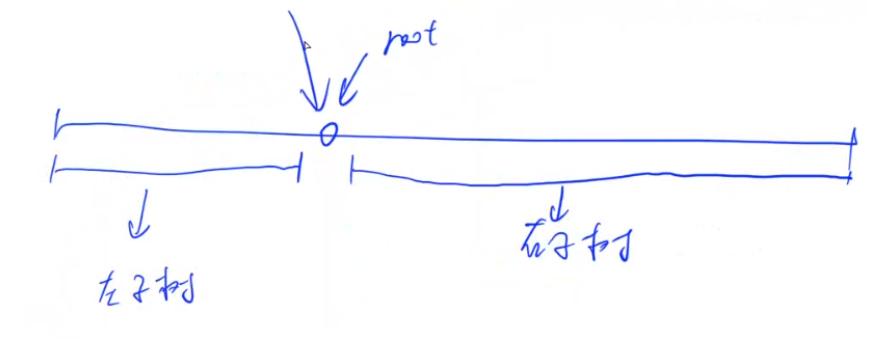 root
右子树
左子树